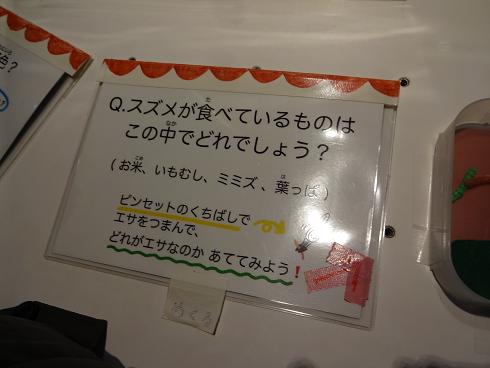 Q.スズメが食べているものは
この中でどれでしょう？
(お米、いもむし、ミミズ、葉っぱ)
ピンセットのくちばしで
エサをつまんで、
どれがエサなのか あててみよう！
めくる